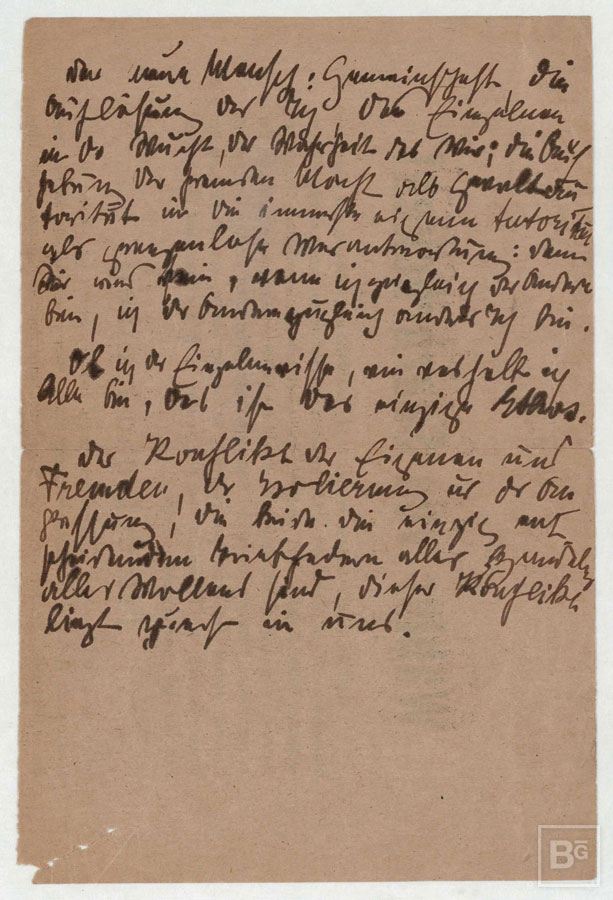 der neue Mensch: Gemeinschaft, die
Auflösung des Ich, des Einzelnen
in der Wucht, der Wahrheit des Wir; die Auf
hebung der fremden Macht als Gewalt Au
torität in die immerste eigenen Autorität
als grenzenlose Verantwortung: denn
Wir wird sein, wenn ich zugleich der Andere
bin, ich der Andere zugleich anders Ich bin.
Ob ich der Einzelne wisse, weshalb ich
Alle bin, das ist das einzige Ethos.
der Konflikt des Eigenen und
Fremden, der Isolierung und der An
passung, die beide die einzig ent
scheidenden Triebfedern alles Handelns
alles Wollens sind, dieser Konflikt
liegt zuerst in uns.
BG